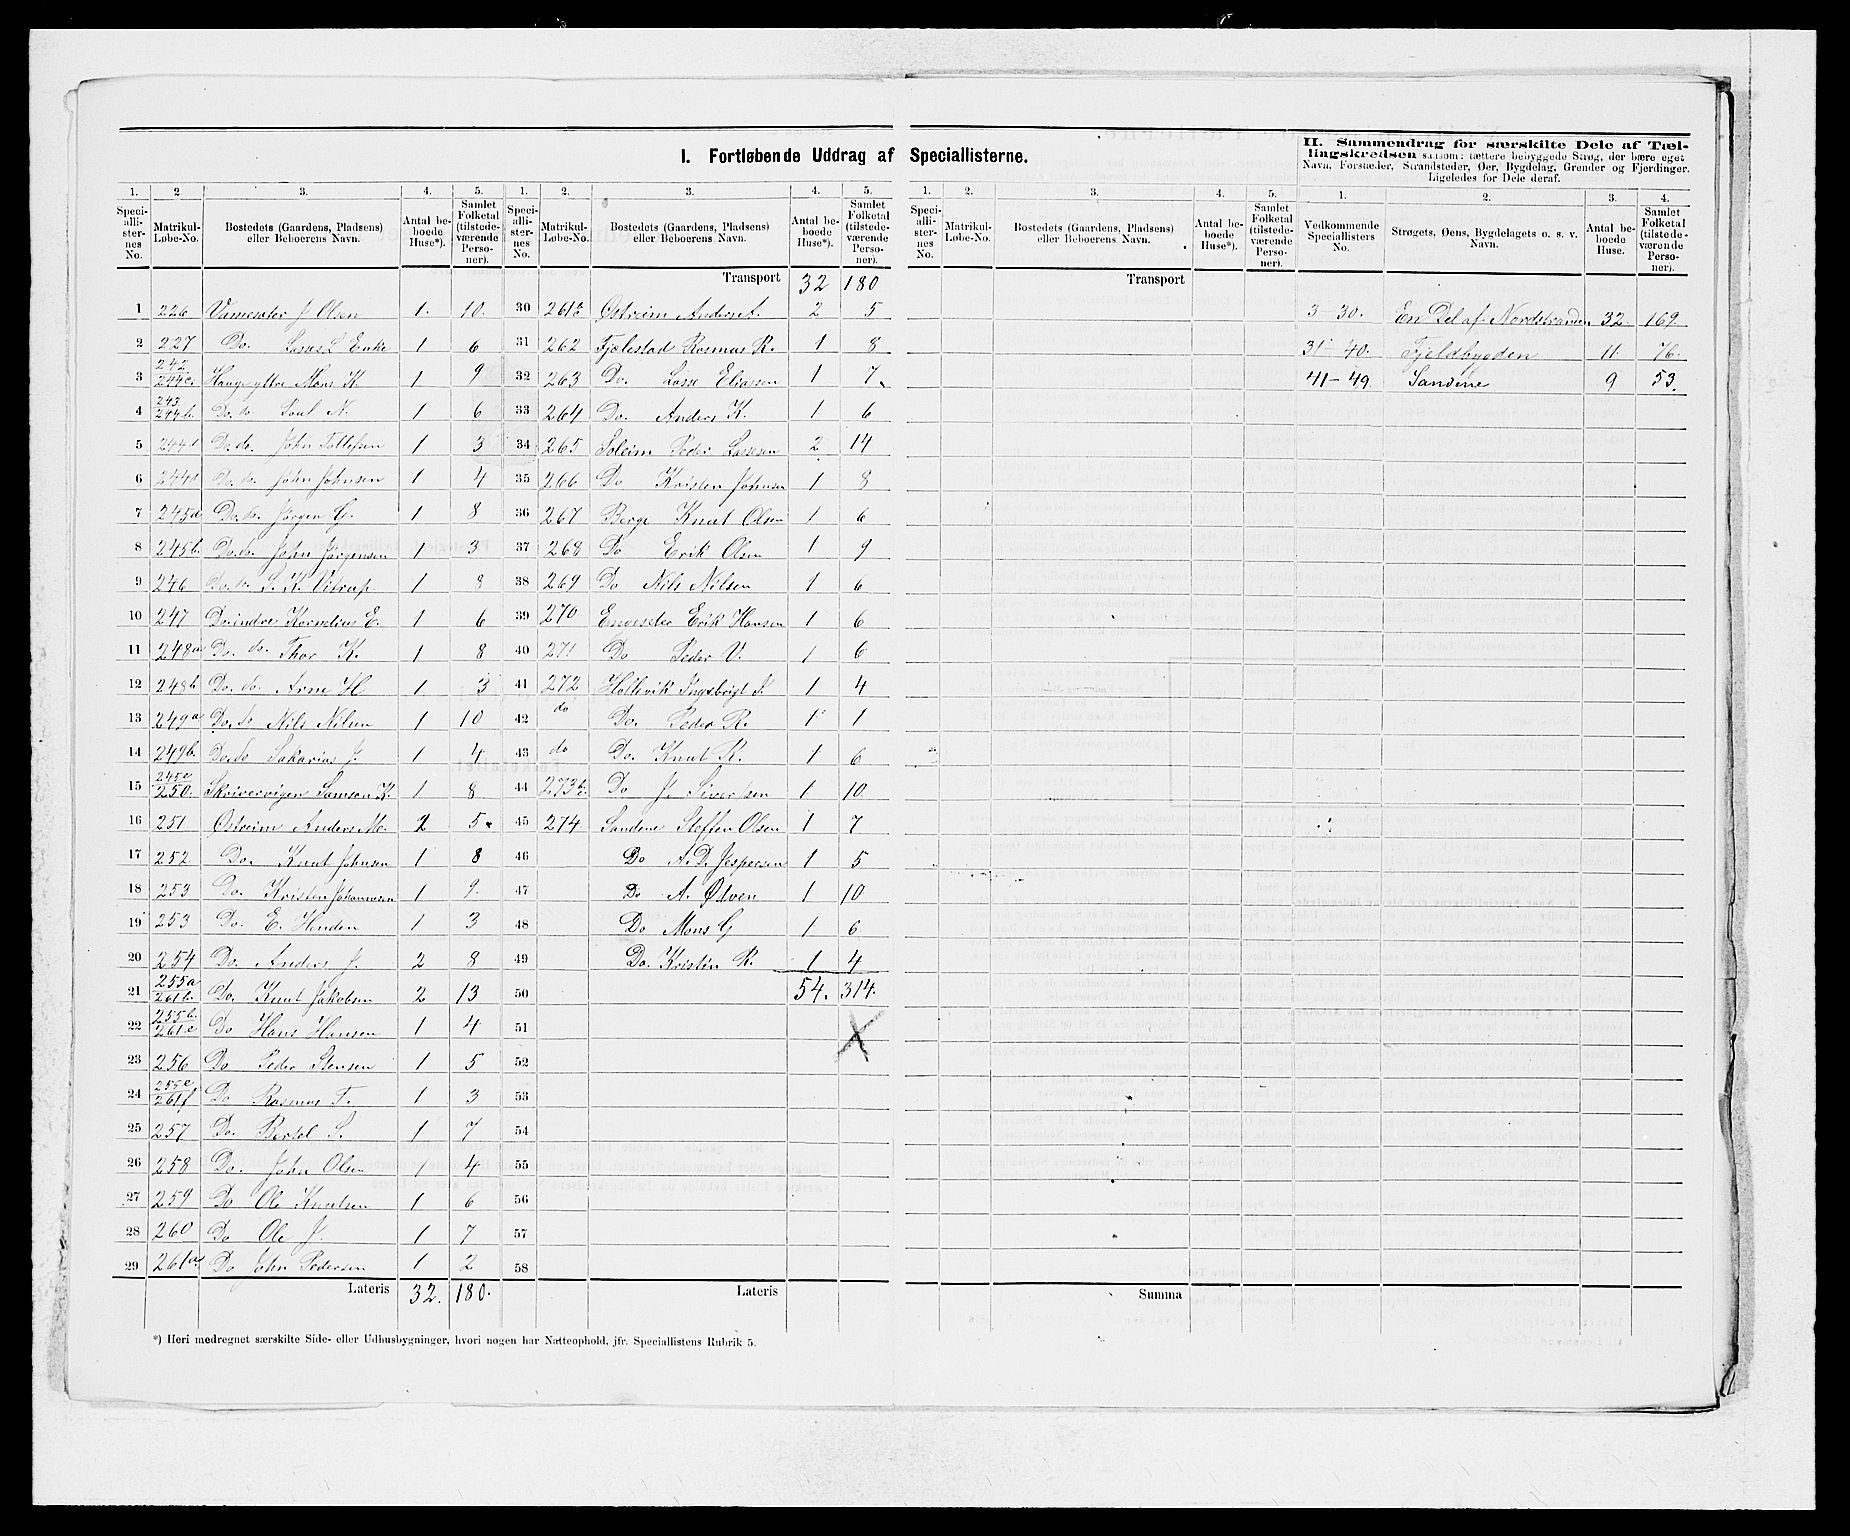 I. Fortløbende Uddrag af Speciallisterne.
II. Sammendrag for særskilte Dele af Tællingskredsen saasom: tættere bebyggede Strøg, der bære eget Navn, Forstæder, Strandsteder, Øer, Bygdelag, Grender og Fjerdinger. Ligeledes for Dele deraf.
1. 2 3. 4. 5.
Speciallisternes No. Matrikul-Løbe-No. Bostedets (Gaardens, Pladsens) eller Beboerens Navn. Antal beboede Huse*). Samlet Folketal (tilstedeværende Personer).
1 226 Vameseter J Olsen 1. 10.
2 227 Do. Lasse L Enke 1 6
3 242 244c. Hauge yttre Mons K. 1 9
4 243 244b. Do. do. Poul N. 1 6
5 244 Do. do. John Tollefsen 1 3
6 244 Do. do. John Johnsen 1 4
7 245a Do. do. Jörgen G. 1 8
8 245b. Do. do. John Jörgensen 1 3
9 246 Do. do. S. K. 1 8
10 247 Do. indre Kornelius E. 1 6
11 248a Do. do. Thor K. 1 8
12 248b Do. do. Arne H 1 3
13 249a Do. do Nils Nilsen 1 10
14 249b. Do. do Sakarias J. 1 4
15 245c 250. Skrivervigen Samson K. 1 8
16 251 Østreim Anders M. 2 5
17 252 Do. Knut Johnsen 1 8
18 253 Do. Kristen Johannesen 1 9.
19 253 Do. E. Hinden 1 3
20 254 Do. Anders J. 2 8
21 255a 261b. Do. Knut Jakobsen 2 13
22 255b. 261c Do Hans Hansen 1 4
23 256 Do Peder Stensen 1 5
24 255c 261f Do Rasmus T. 1 3
25 257 Do. Bertel S. 1 7
26 258 Do. John Olsen 1 4
27 259 Do Ole Knutsen 1 6
28 260 Do Ole J. 1 7
29 261 Do John Pedersen 1 2
Lateris 32. 180.
1. 2. 3. 4. 5.
Speciallisternes No. Matrikul-Løbe-No. Bostedets (Gaardens, Pladsens) eller Beboerens Navn. Antal beboede Huse*). Samlet Folketal (tilstedeværende Personer).
Transport 32 180
30 261 Østreim Anders A. 2 5
31 262 Fjælestad Rasmus R. 1 8
32 263 Do. Lasse Eliassen 1 7
33 264 Do. Anders K. 1 6
34 265 Soleim Peder Lassesen 2 14
35 266 Do Kristen Johnsen 1 8
36 267 Berge Knut Olsen 1 6
37 268 Do Erik Olsen 1 9
38 269 Do Nils Nilsen 1 6
39 270 Enveseter Erik Hansen 1 6
40 271 Do Peder V. 1 6
41 272 Hollevik Ingebrigt 1 4
42 do Do. Peder R. 1 1
43 do Do. Knut R. 1 6
44 273 Do J. Sivertsen 1 10
45 274 Sandene Steffen Olsen 1 7
46 Do A. D. Jespersen 1 5
47 Do A. Ødven 1 10
48 Do Mons G 1 6
49 Do. Kristin R. 1 4
50 54. 314.
51
52
53
54
55
56
57
58
Lateris
1. 2. 3. 4. 5.
Speciallisternes No. Matrikul-Løbe-No. Bostedets (Gaardens, Pladsens) eller Beboerens Navn. Antal beboede Huse*). Samlet Folketal (tilstedeværende Personer).
Transport
Summa
1. 2. 3. 4.
Vedkommende Speciallisters No. Strøgets, Øens, Bygdelagets o. s. v. Navn. Antal beboede Huse. Samlet Folketal (tilstedeværende Personer).
3 30. En Del af Nordstranden 32. 169.
31 - 40. Fjeldbygden 11. 76.
41 - 49. Sandene 9 53.
*) Heri medregnet særskilte Side- eller Udhusbygninger, hvori nogen har Natteophold, jfr. Speciallistens Rubrik 5.